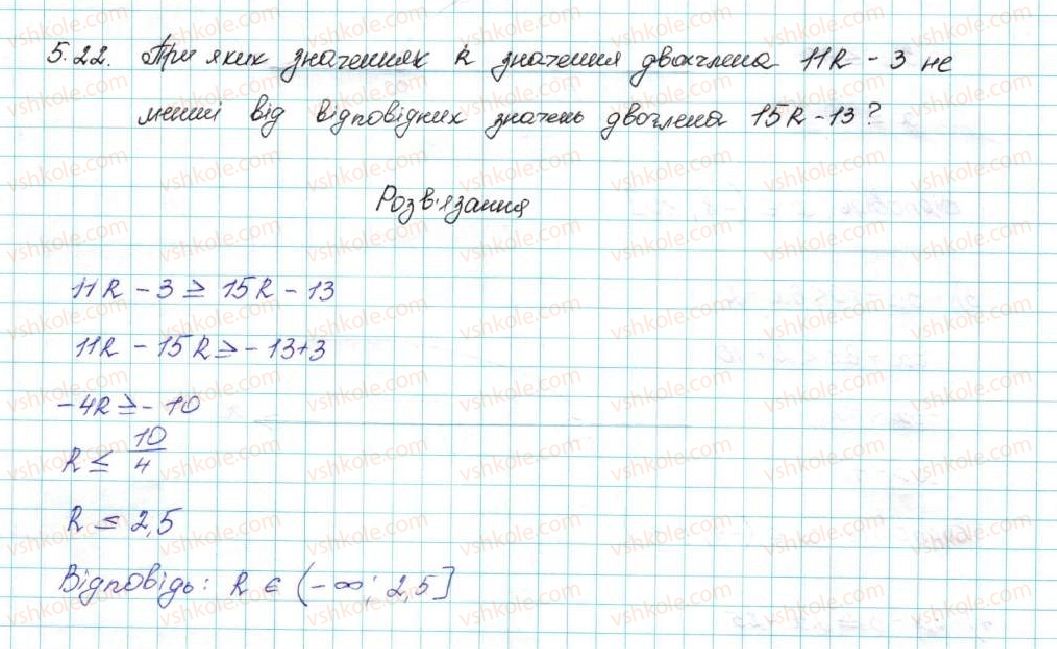 5.22. При яких значеннях k значення двочлена 11k - 3 не
менші від відповідних значень двочлена 15k - 13?
Розв'язання
11k - 3 ≥ 15k - 13
11k - 15k ≥ - 13+3
-4k ≥ - 10
k ≤ 10/4
k ≤ 2,5
Відповідь: k ∈ (-∞; 2,5]